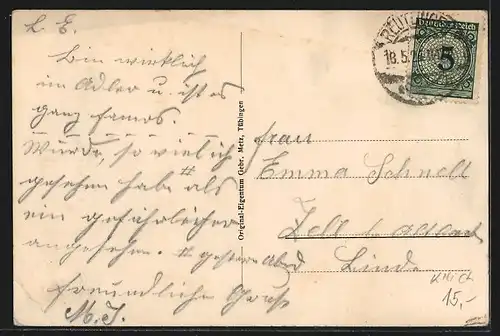 L. E.
Bin wirklich
im Adler u. ist es
ganz famos.
Würde, so viel ich
gesehen habe als
ein gefährlicher
angesehen. # gestern Abd
freundliche Gruß
M. J.
Original-Eigentum Gebr. Metz, Tübingen
REUTLINGEN
18.5.
Deutsches Reich
5
Frau
Emma Schnelt
Zell
Linde
15,-